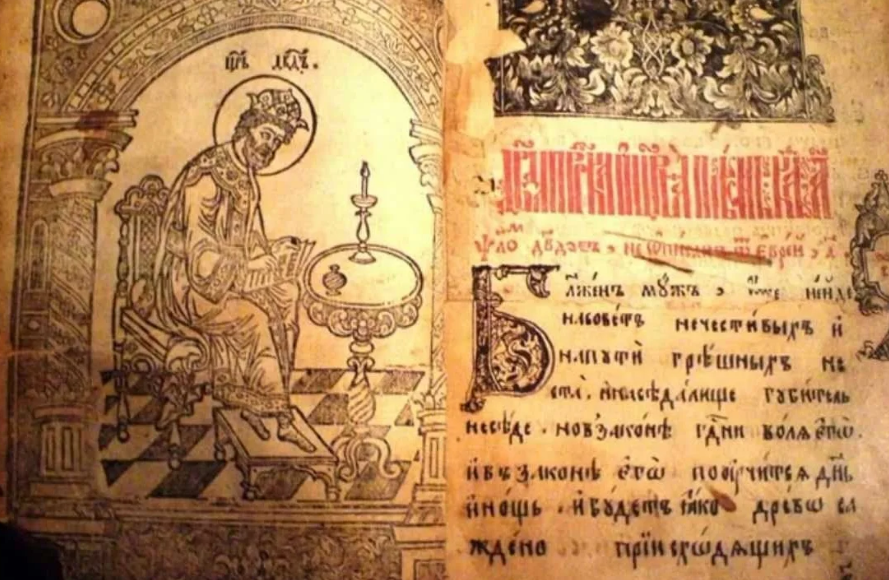 цр҃ь дв҃дъ.
ѱало́мъ дв҃довъ , не ѡпи́санъ ѿ евре́й , а҃
Бл҃же́нъ мꙋ́жъ , и́же не и́де
на совѣ́тъ нечести́выхъ и҆
на пꙋти́ грѣ́шныхъ не
ста̀. и҆ на сѣда́лище гꙋби́тель
не сѣ́де . но в̾ зако́нѣ гдⷭ҇ни во́лѧ є҆гѡ̀ .
и҆ въ зако́нѣ є҆гѡ̀ поꙋчи́тсѧ дн҃ь
и҆ но́щь . и҆ бꙋ́детъ ꙗ҆́ко дре́вѡ са
жде́но при и҆схѡ́дѧщихъ